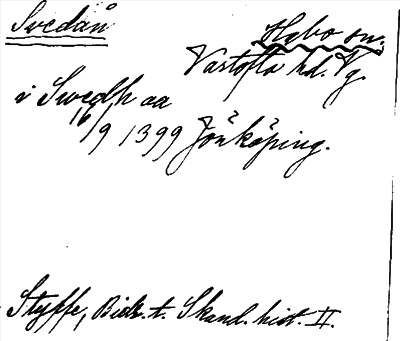 Svedån
Habo sn.
Vartofta hd. Vg.
i Swedh aa
16/9 1399 Jönköping.
Styffe, Bidr. t. Skand. hist. II.